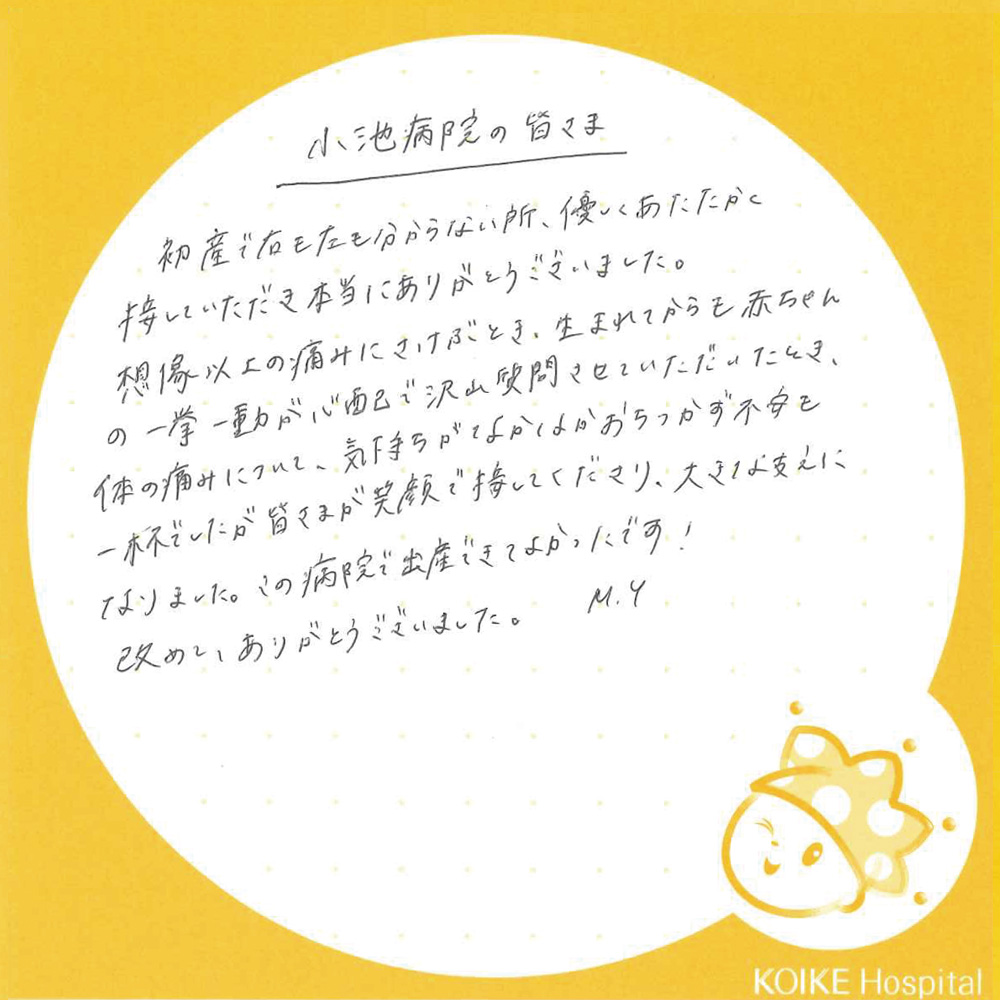 小池病院の皆さま
初産で右も左も分からない所、優しくあたたかく
接していただき本当にありがとうございました。
想像以上の痛みにさけぶとき、生まれてからも赤ちゃん
の一挙一動が心配で沢山質問させていただいたとき、
体の痛みについて、気持ちがなかなかおちつかず不安も
一杯でしたが皆さまが笑顔で接してくださり、大きな支えに
なりました。この病院で出産できてよかったです！
改めて、ありがとうございました。 M.Y
KOIKE Hospital